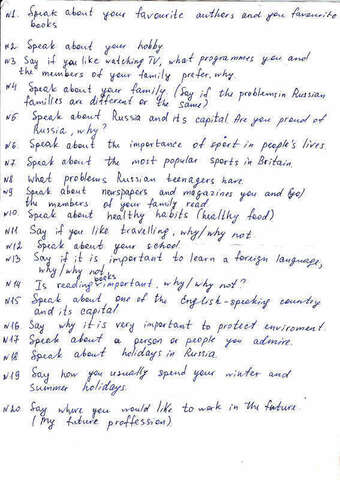 N1. Speak about your favourite authors and you favourite
books
N2 Speak about your hobby
N3 Say if you like watching TV, what programmes you and
the members of your family prefer, why.
N4 Speak about your family (Say if the problems in Russian
families are different or the same)
N5 Speak about Russia and its capital Are you proud of
Russia, why?
N6. Speak about the importance of sport in people's lives
N7 Speak about the most popular sports in Britain
N8 What problems Russian teenagers have
N9 Speak about newspapers and magazines you and
the members of your family read.
N10 Speak about healthy habits (healthy food)
N11 Say if you like travelling, why/why not
N12 Speak about your school
N13 Say if it is important to learn a foreign language,
why/why not
N14 Is reading books important, why/why not?
N15 Speak about one of the English-speaking country
and its capital
N16 Say why it is very important to protect enviroment.
N17 Speak about a person or people you admire.
N18 Speak about holidays in Russia
N19 Say how you usually spend your winter and
summer holidays.
N20 Say where you would like to work in the future
(My future proffession)